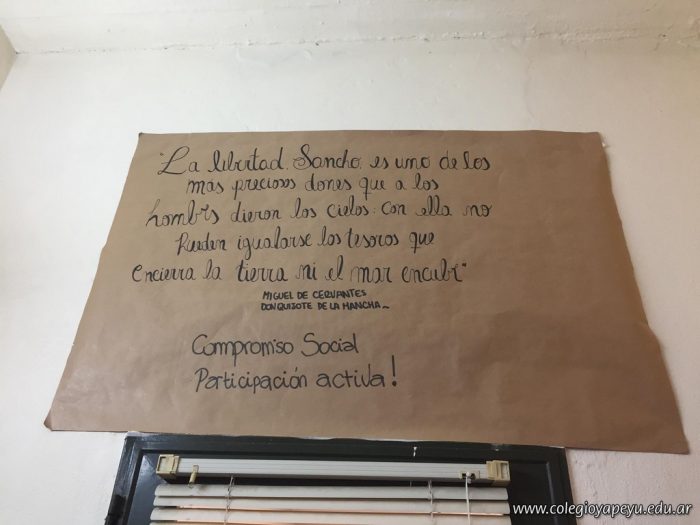 "La libertad, Sancho, es uno de los
más preciosos dones que a los
hombrs dieron los cielos: con ella no
Pueden igualarse los tesoros que
encierra la tierra ni el mar encubr"
MIGUEL DE CERVANTES
DON QUIJOTE DE LA MANCHA_
Compromiso Social
Participación activa!
www.colegioyapeyu.edu.ar